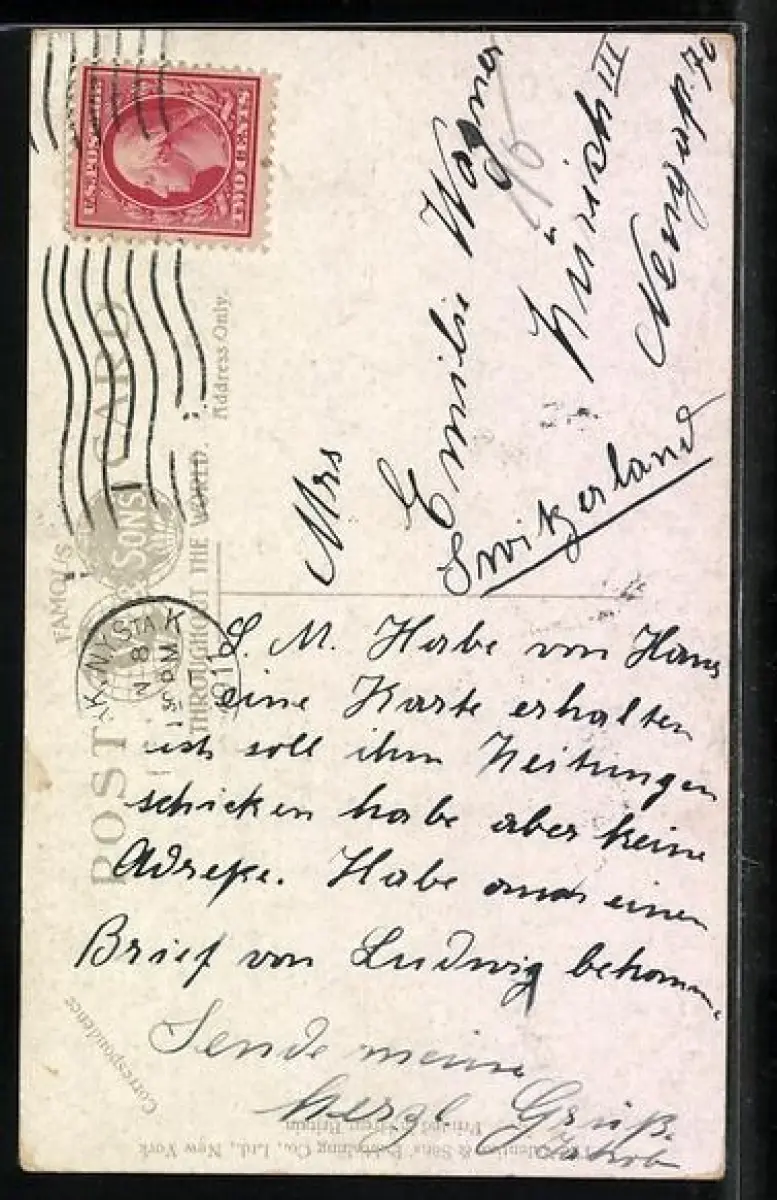 U.S. POSTAGE
TWO CENTS
Mrs
Emilie Wagner
Zürich III
Switzerland
FAMOUS
SONS
POST CARD
THROUGHOUT THE WORLD.
Address Only.
N.Y. STA K
8
PM
1911
L. M. Habe von Hans
eine Karte erhalten
ich soll ihm Zeitungen
schicken habe aber keine
Adreße. Habe auch einen
Brief von Ludwig bekomme
Sende meine
herzl Grüß.
Jakob
Correspondence
Valentine & Sons' Publishing Co., Ltd., New York
Printed in Great Britain